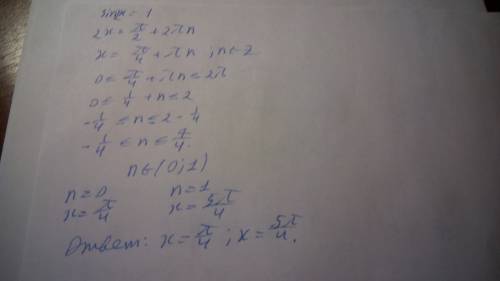 sin2x = 1
2x = π/2 + 2πn
x = π/4 + πn ; n∈Z
0 ≤ π/4 + πn ≤ 2π
0 ≤ 1/4 + n ≤ 2
-1/4 ≤ n ≤ 2 - 1/4
-1/4 ≤ n ≤ 7/4.
n∈(0;1)
n = 0 n = 1
x = π/4 x = 5π/4
Ответ: x = π/4 ; x = 5π/4.